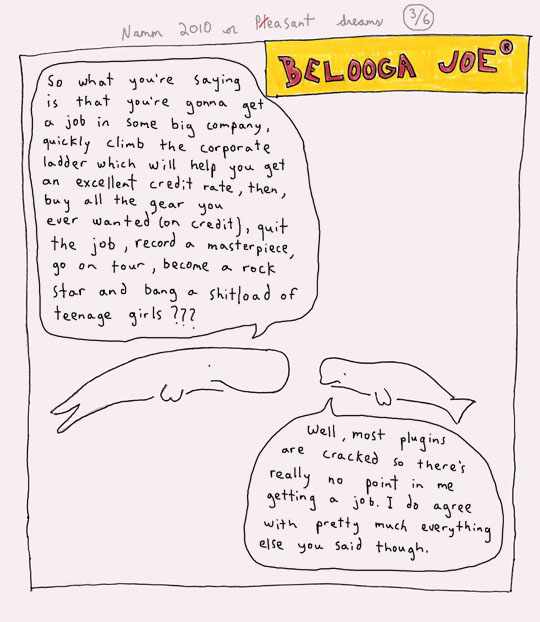 Namm 2010 or Pleasant dreams 3/6
BELOOGA JOE®
So what you're saying
is that you're gonna get
a job in some big company,
quickly climb the corporate
ladder which will help you get
an excellent credit rate, then,
buy all the gear you
ever wanted (on credit), quit
the job, record a masterpiece,
go on tour, become a rock
star and bang a shitload of
teenage girls ???
Well, most plugins
are cracked so there's
really no point in me
getting a job. I do agree
with pretty much everything
else you said though.